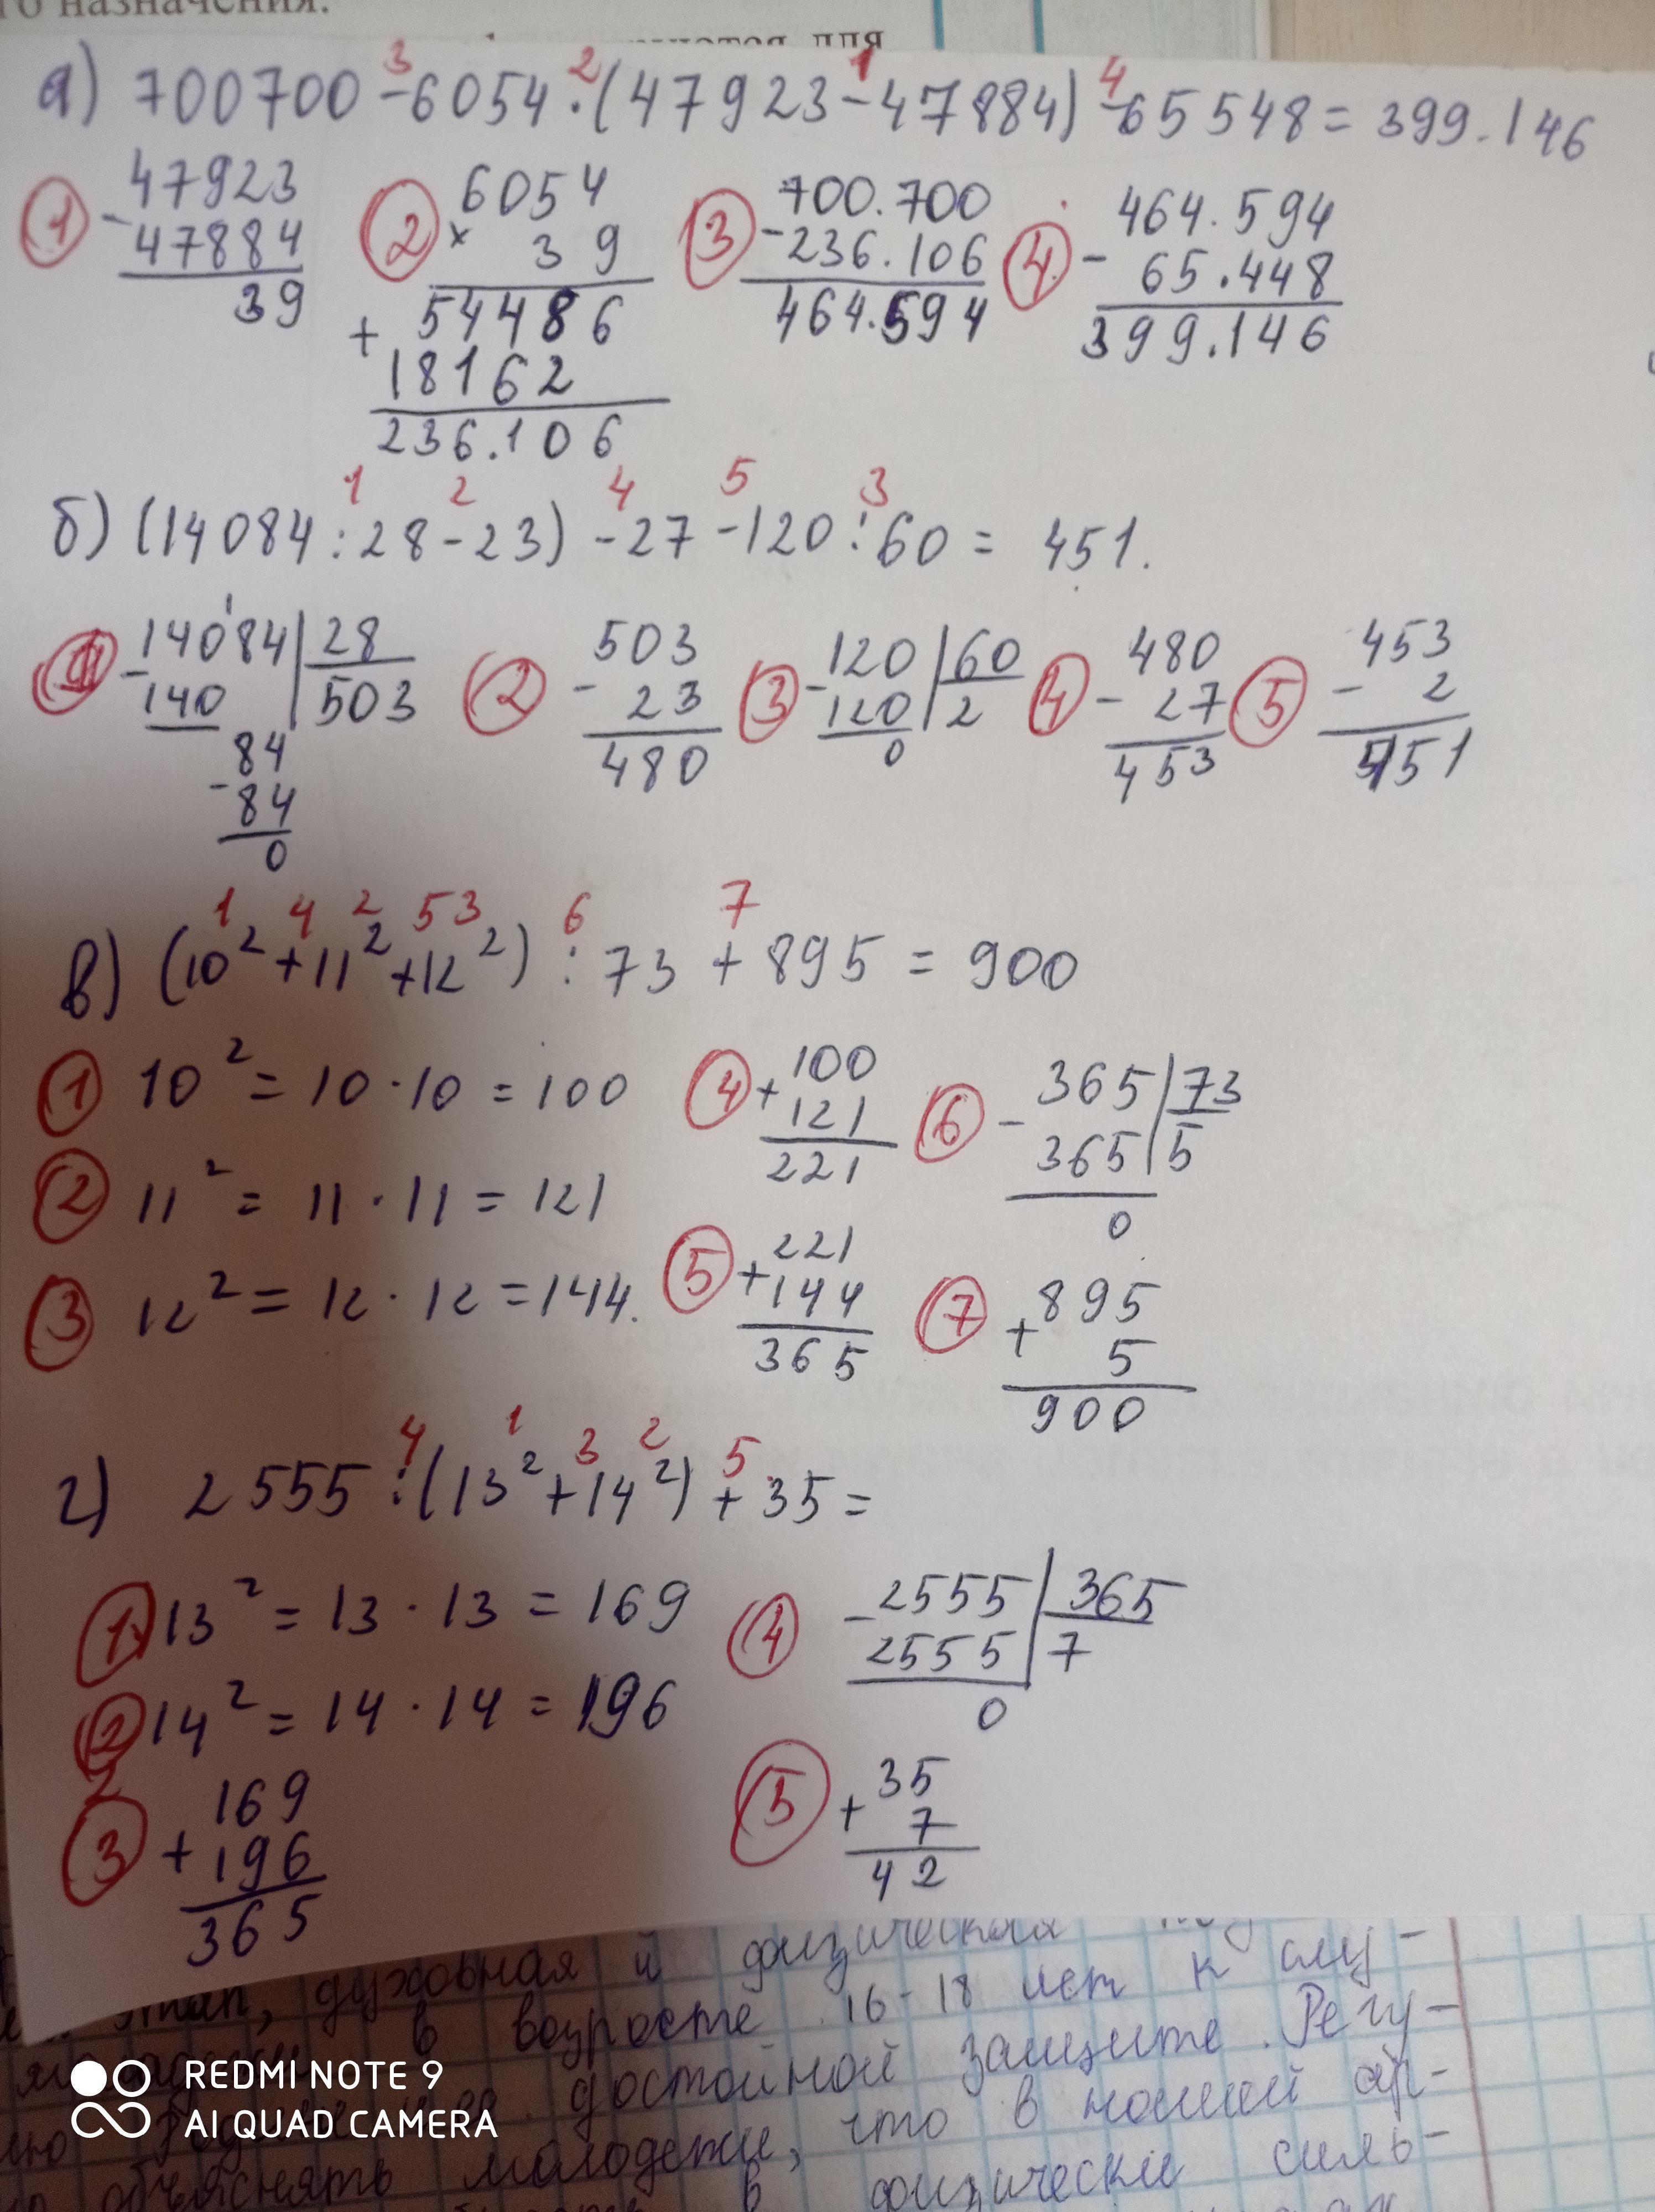 го назначения.
для
а) 700700 - 6054 · (47923 - 47884) - 65548 = 399.146
3 2 1 4
① 47923 - 47884 39
② 6054 × 39 54486 + 18162 236.106
③ 700.700 - 236.106 464.594
④ 464.594 - 65.448 399.146
1 2 4 5 3
б) (14084 : 28 - 23) - 27 - 120 : 60 = 451.
① 14084 28 - 140 503 84 - 84 0
② 503 - 23 480
③ 120 60 - 120 2 0
④ 480 - 27 453
⑤ 453 - 2 451
1 4 2 5 3 6 7
в) (10² + 11² + 12²) : 73 + 895 = 900
① 10² = 10 · 10 = 100
② 11² = 11 · 11 = 121
③ 12² = 12 · 12 = 144.
④ 100 + 121 221
⑤ 221 + 144 365
⑥ 365 73 - 365 5 0
⑦ 895 + 5 900
4 1 3 2 5
г) 2555 : (13² + 14²) + 35 =
① 13² = 13 · 13 = 169
② 14² = 14 · 14 = 196
③ 169 + 196 365
④ 2555 365 - 2555 7 0
⑤ 35 + 7 42
этап, духовная и физическая
в возрасте 16-18 лет к слу-
достойной защите. Регу-
молодежи, что в нашей ар-
объяснять в физически силь-
REDMI NOTE 9
AI QUAD CAMERA